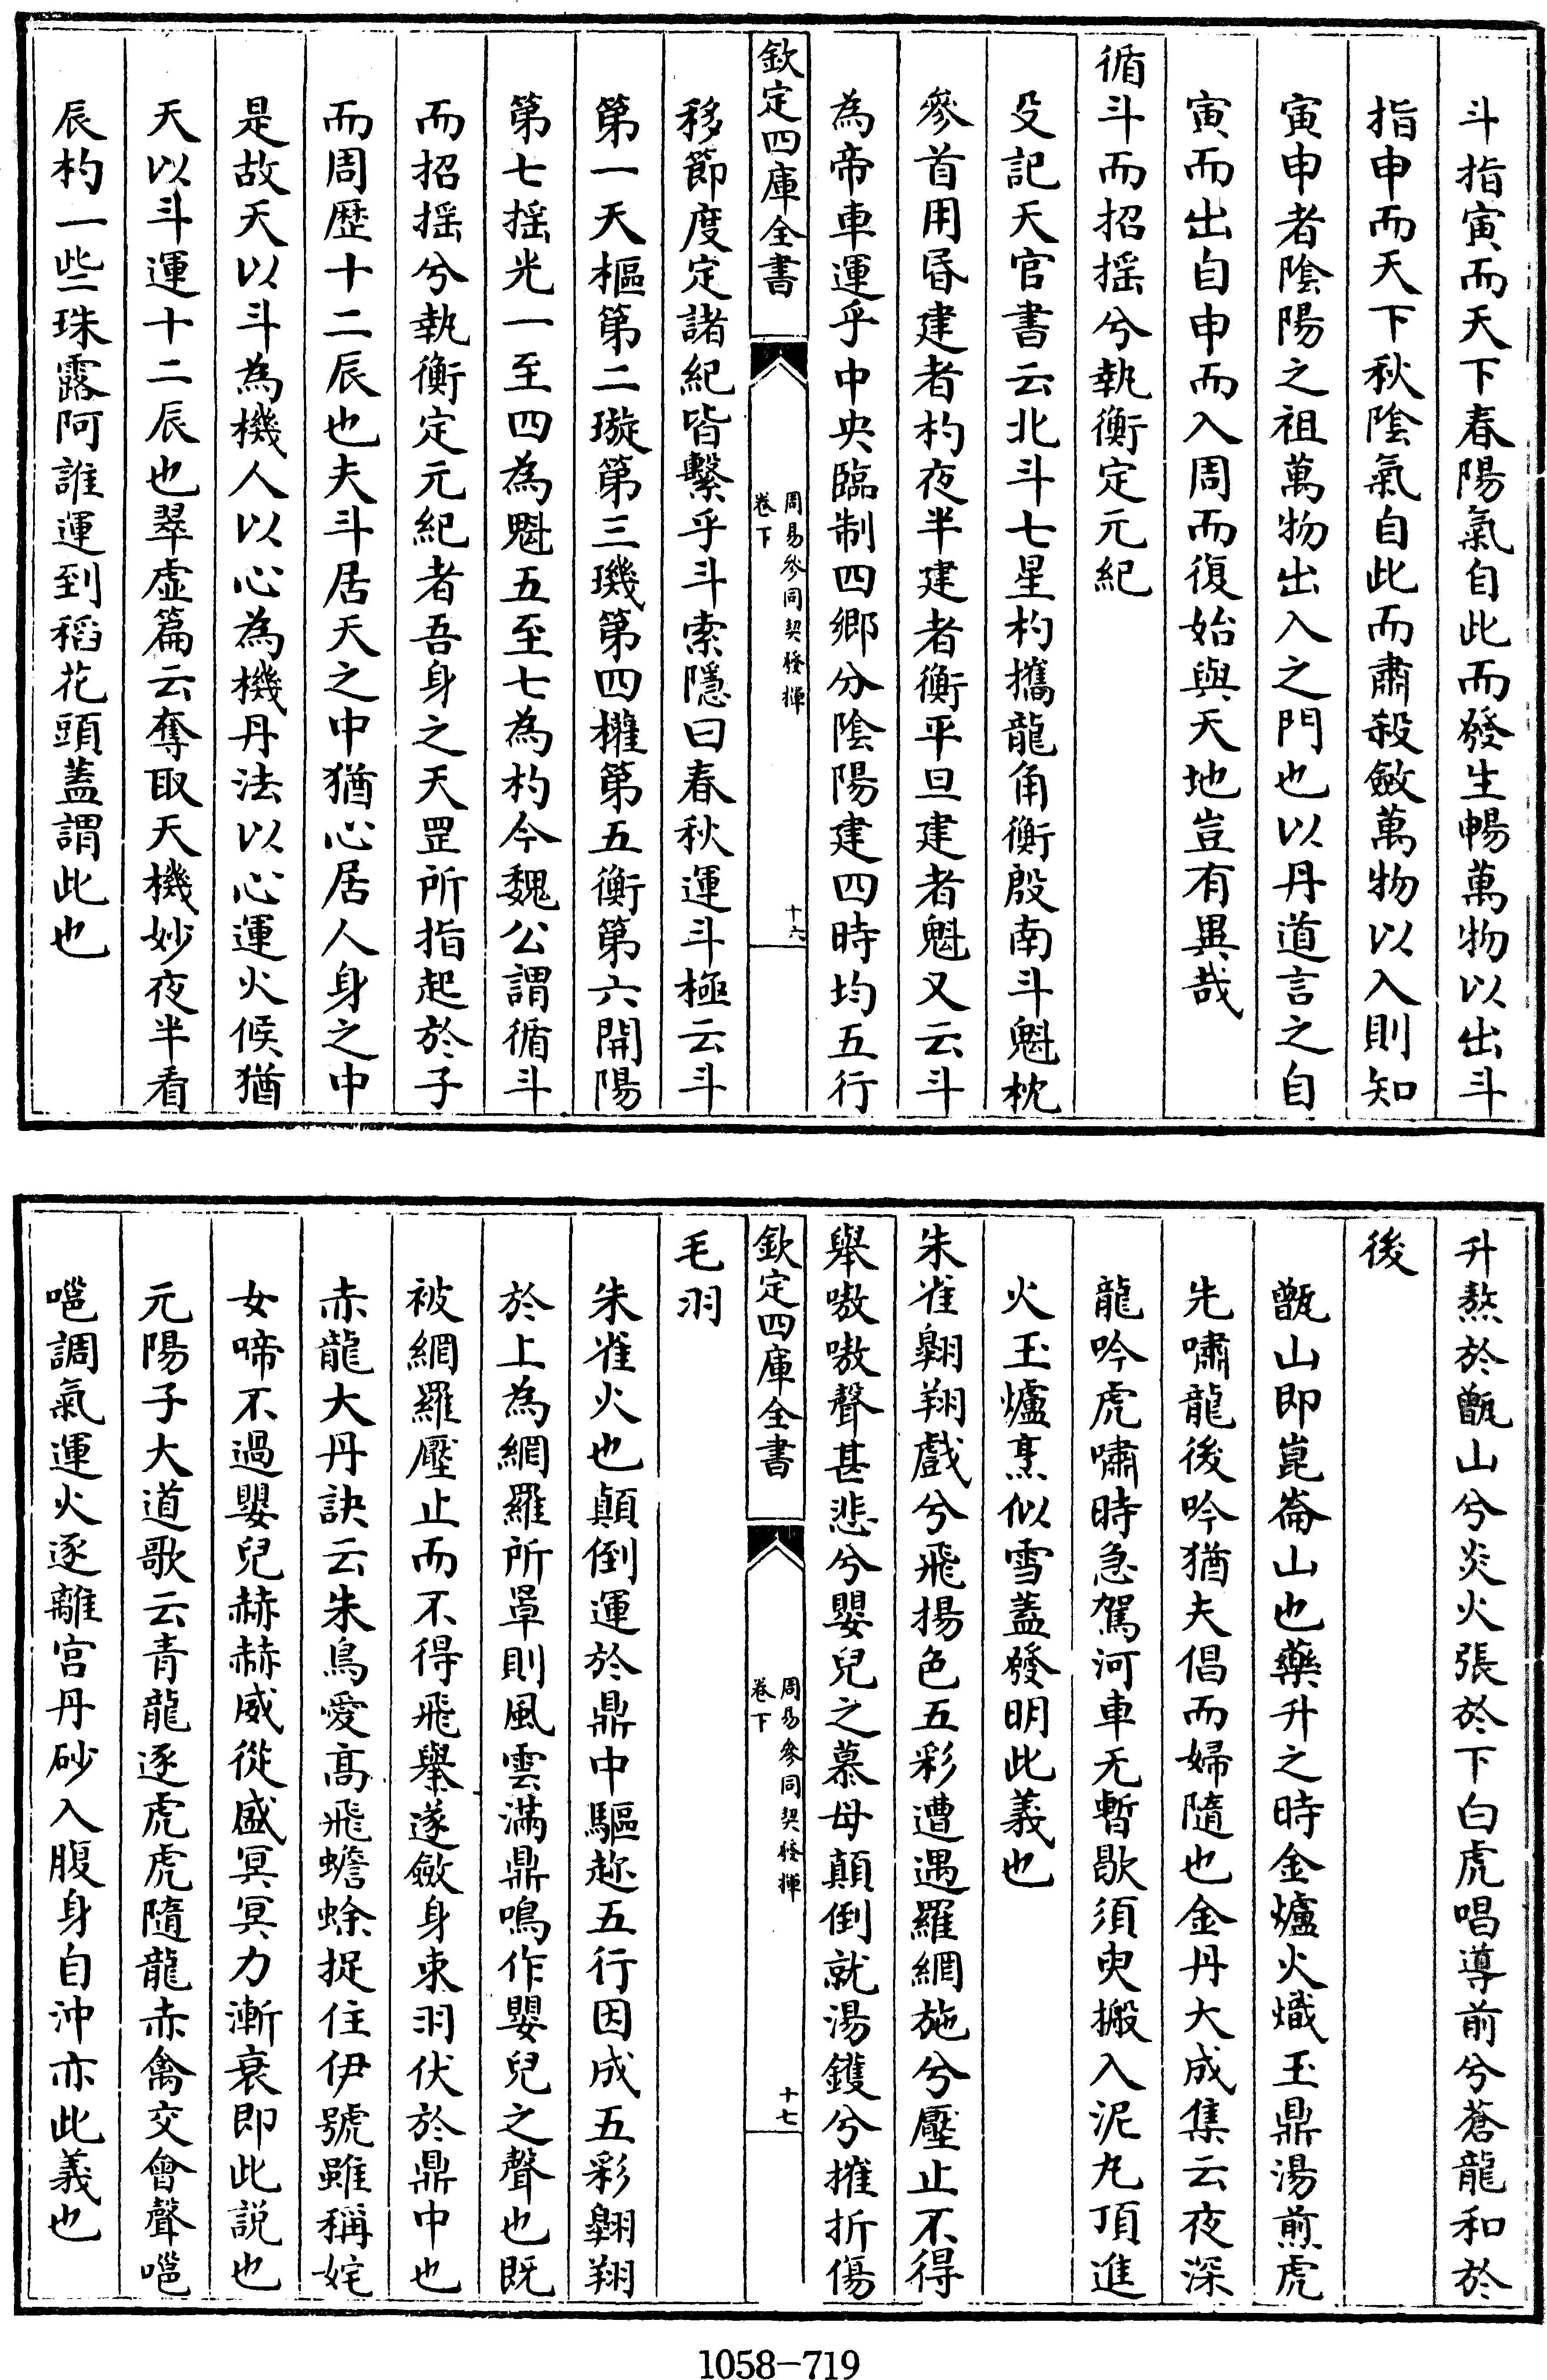 斗指寅而天下春陽氣自此而發生暢萬物以出斗
指申而天下秋陰氣自此而肅殺斂萬物以入則知
寅申者陰陽之祖萬物出入之門也以丹道言之自
寅而出自申而入周而復始與天地豈有異哉
循斗而招摇兮執衡定元紀
㕛記天官書云北斗七星杓攜龍角衡殷南斗魁枕
參首用昬建者杓夜半建者衡平旦建者魁又云斗
為帝車運乎中央臨制四鄉分陰陽建四時均五行
欽定四庫全書
周易參同契發揮
卷下
十六
移節度定諸紀皆繫乎斗索隱曰春秋運斗極云斗
第一天樞第二璇第三璣第四權第五衡第六開陽
第七摇光一至四為魁五至七為杓今魏公謂循斗
而招摇兮執衡定元紀者吾身之天罡所指起於子
而周歷十二辰也夫斗居天之中猶心居人身之中
是故天以斗為機人以心為機丹法以心運火候猶
天以斗運十二辰也翠虚篇云奪取天機妙夜半看
辰杓一些珠露阿誰運到稻花頭蓋謂此也
升熬於甑山兮炎火張於下白虎唱導前兮蒼龍和於
後
甑山即崑崙山也藥升之時金爐火熾玉鼎湯煎虎
先嘯龍後吟猶夫倡而婦隨也金丹大成集云夜深
龍吟虎嘯時急駕河車无暫歇須臾搬入泥丸頂進
火玉爐烹似雪蓋發明此義也
朱雀翱翔戲兮飛揚色五彩遭遇羅網施兮壓止不得
舉嗷嗷聲甚悲兮嬰兒之慕母顛倒就湯鑊兮摧折傷
欽定四庫全書
周易參同契發揮
卷下
十七
毛羽
朱雀火也顛倒運於鼎中驅趂五行因成五彩翱翔
於上為網羅所罩則風雲滿鼎鳴作嬰兒之聲也既
被網羅壓止而不得飛舉遂斂身束羽伏於鼎中也
赤龍大丹訣云朱鳥愛高飛蟾蜍捉住伊號雖稱姹
女啼不過嬰兒赫赫威從盛冥冥力漸衰即此説也
元陽子大道歌云青龍逐虎虎隨龍赤禽交會聲嗈
嗈調氣運火逐離宫丹砂入腹身自沖亦此義也
1058-719